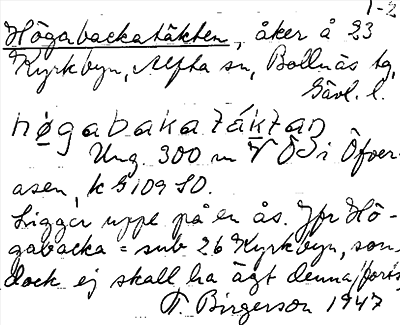 1-2
Högabackatäkten, åker å 23
Kyrkbyn, Alfta sn, Bollnäs tg,
Gävl. l.
høgabakatáktan
Ung. 300 m V Ö i Öfver-
åsen, k S 109 SO.
Ligger uppe på en ås. Jfr Hö-
gabacka = sub 26 Kyrkbyn, som
dock ej skall ha ägt denna
T. Birgerson 1947